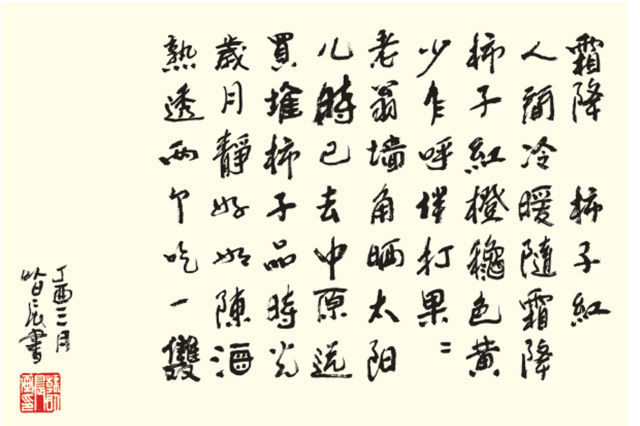 霜降 柿子紅
人間冷暖隨霜降
柿子紅橙穐色黄
少乍呼催打果〻
老翁墙角晒太阳
儿時已去中原远
買堆柿子品時光
歲月靜好如陳酒
熟透兩个吃一雙
丁酉三月
辰書